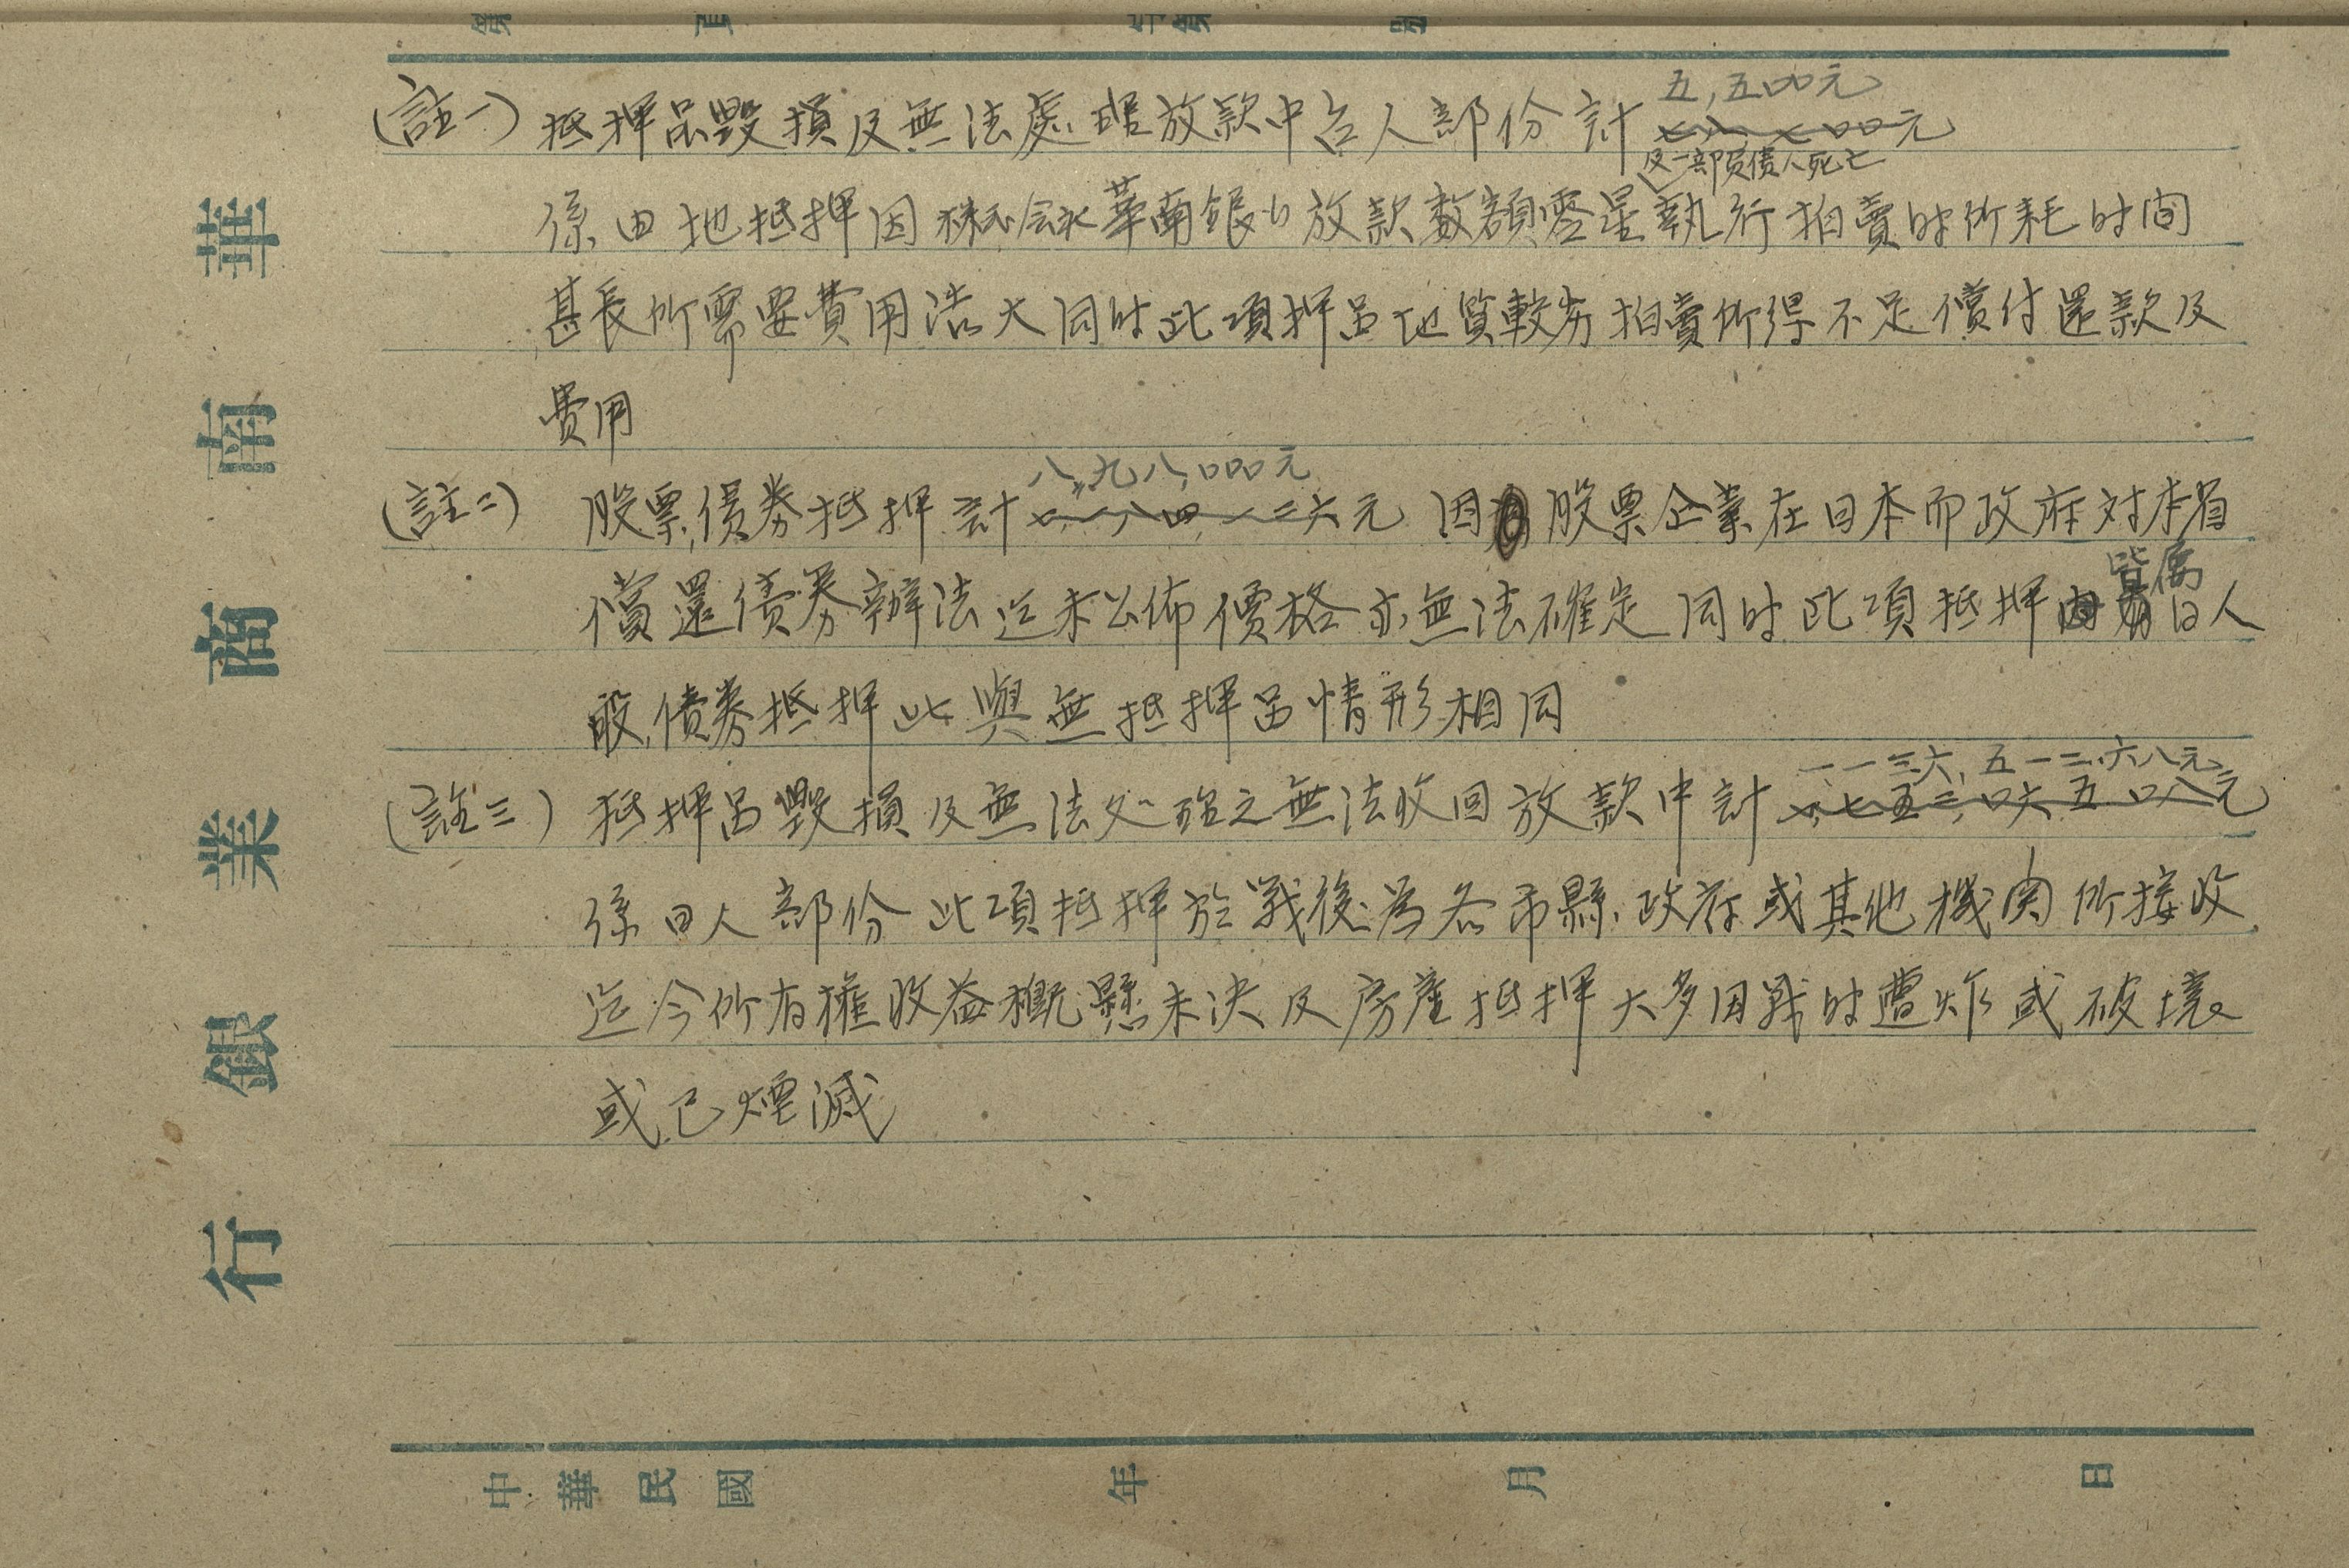 (註一) 抵押品毀損及無法處理放款中台人部份計 五,五00元
及一部負債人死亡
係由地抵押因株式会社華南銀行放款数額零星執行拍賣时所耗时间
甚長所需要費用浩大同时此項押品地質較劣拍賣所得不足償付還款及
費用
(註二) 股票,債券抵押計 八,九八,000元 因股票企業在日本而政府対本省
償還債券辦法迄未公佈價格亦無法確定同时此項抵押皆屬日人
股,債券抵押此與無抵押品情形相同
(註三) 抵押品毀損及無法处理之無法收回放款中計 一一三六,五一二.六八元
係日人部份此項抵押於戰後為各市縣政府或其他機関所接收
迄今所有權收益概懸未决及房產抵押大多因戰时遭炸或破壞
或已煙滅
華南商業銀行
中華民國 年 月 日